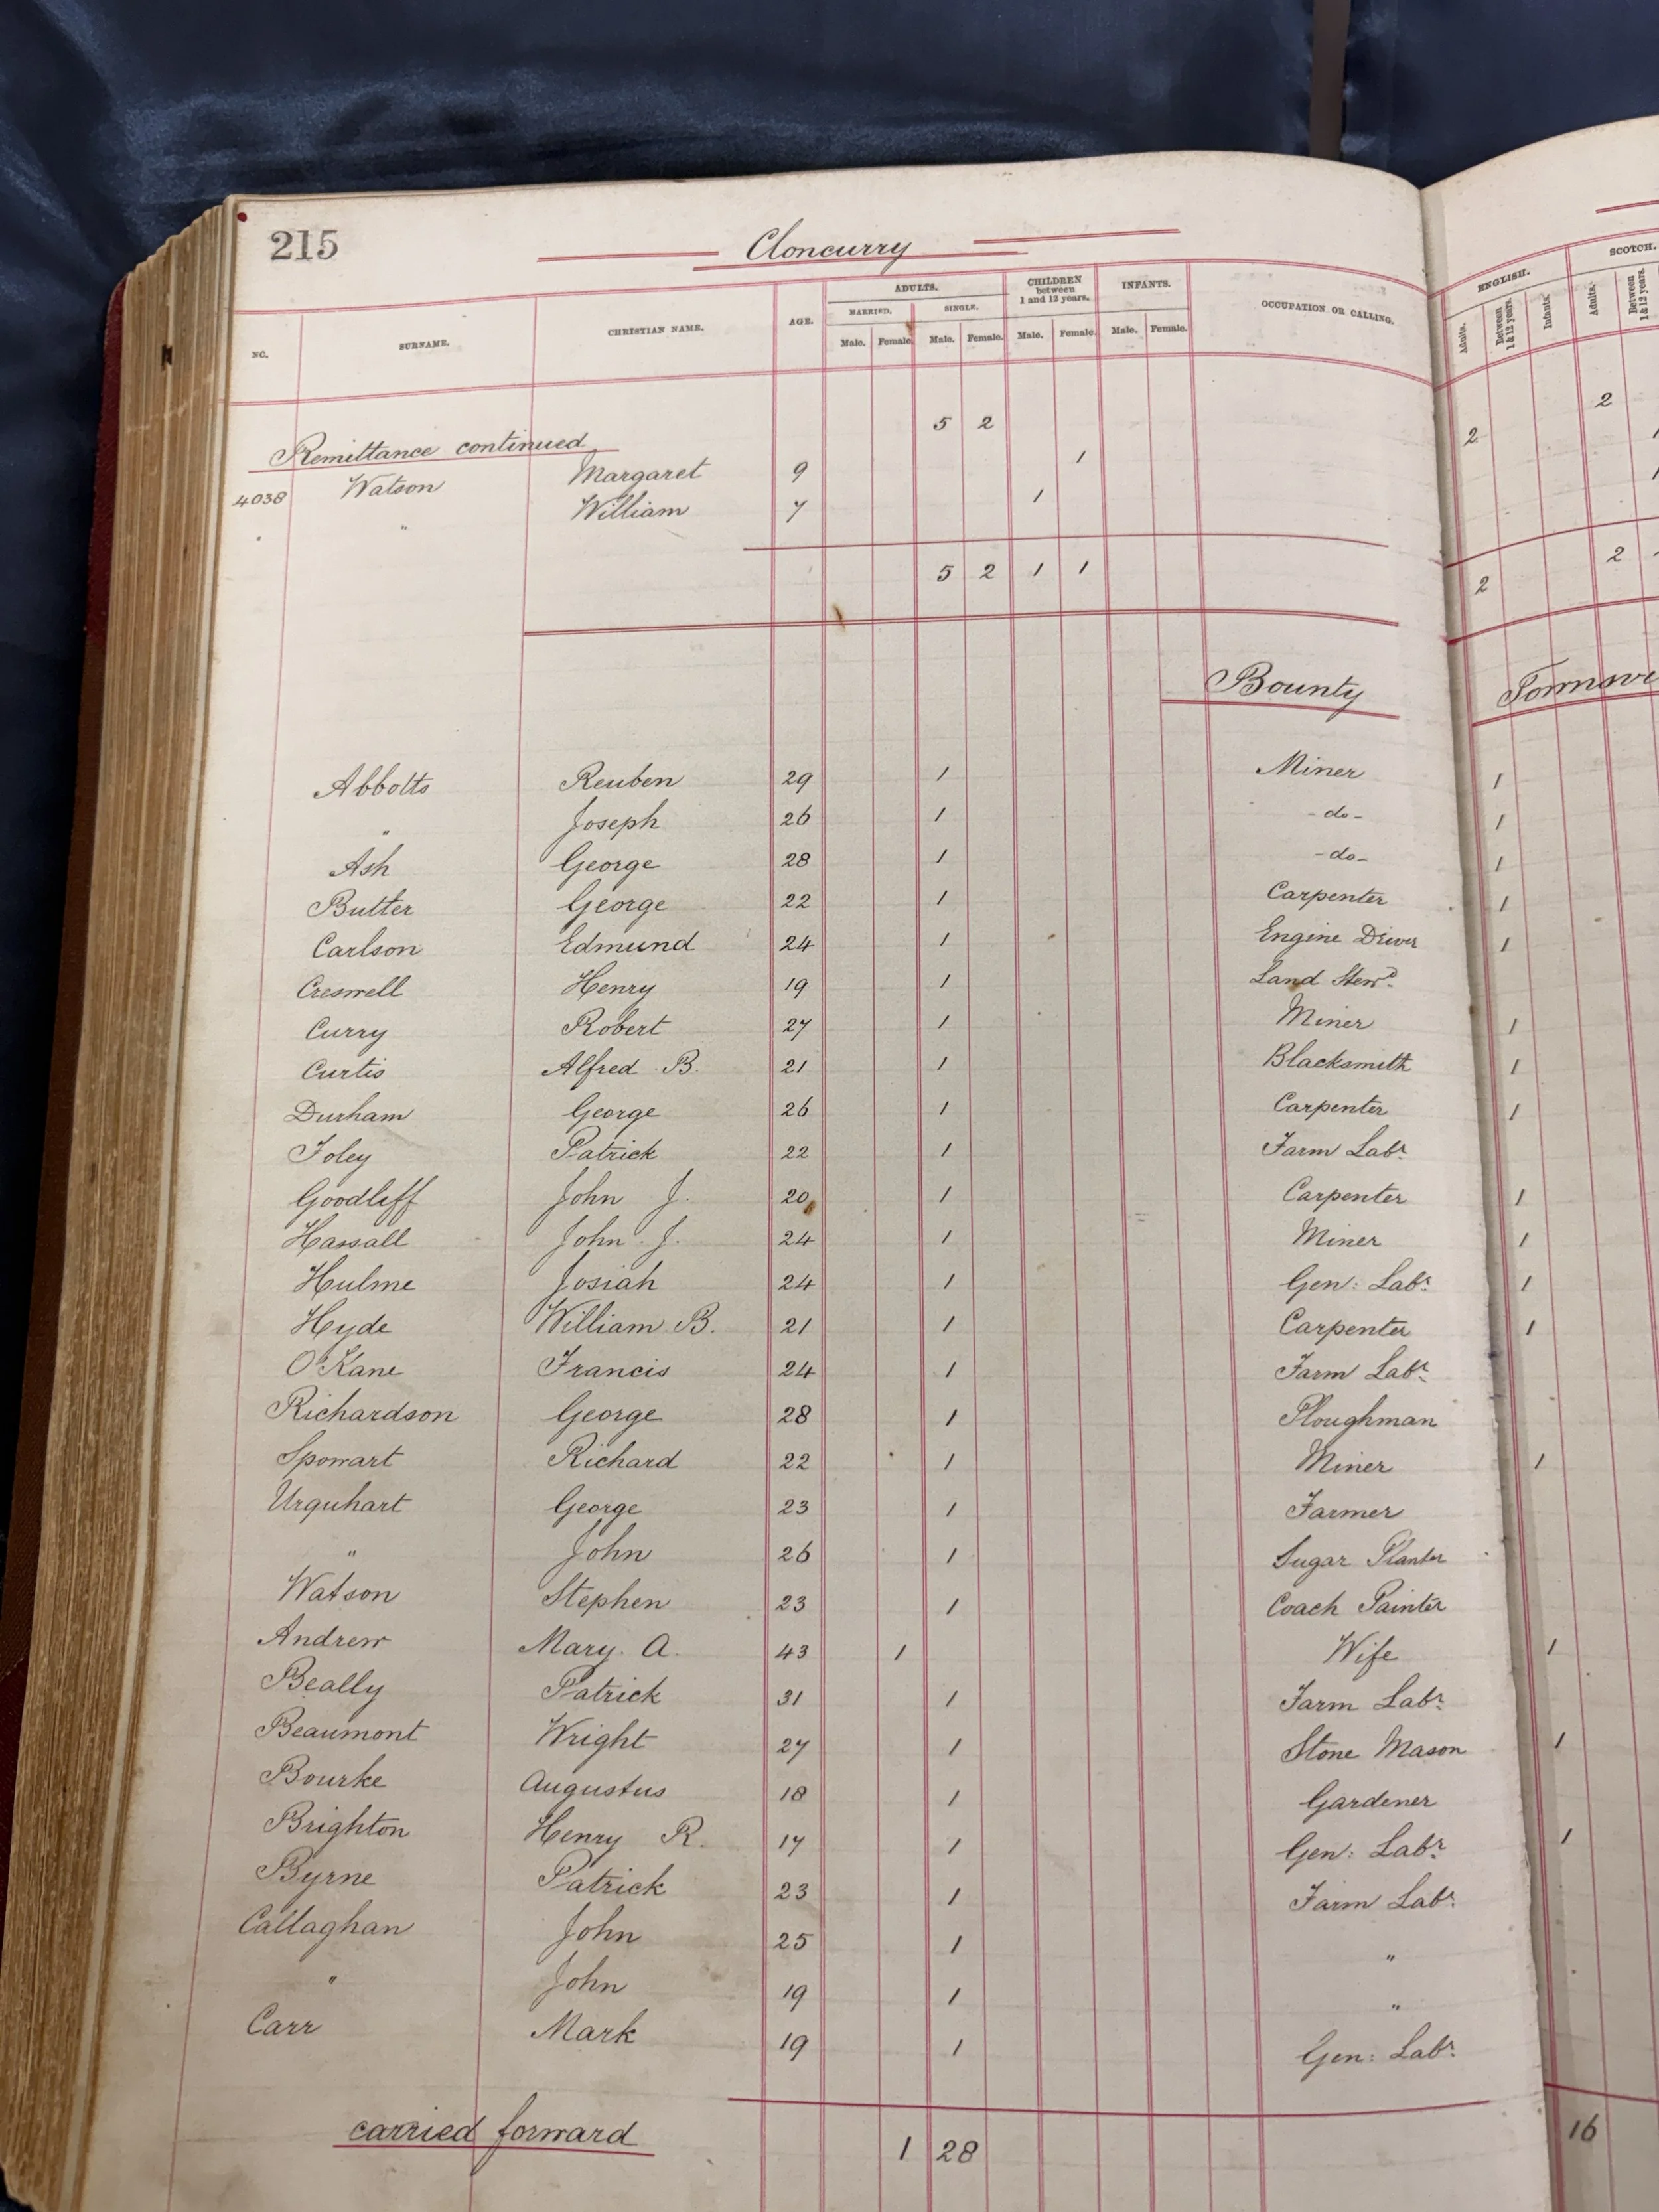 215 Cloncurry
NO. SURNAME. CHRISTIAN NAME. AGE. ADULTS. MARRIED. Male. Female. SINGLE. Male. Female. CHILDREN between 1 and 12 years. Male. Female. INFANTS. Male. Female. OCCUPATION OR CALLING. ENGLISH. Adults. Between 1 & 12 years. Infants. SCOTCH. Adults. Between 1 & 12 years.
5 2 2 2
Remittance continued
4038 Watson Margaret 9 1 1
" William 7 1 1
5 2 1 1 2 2
Bounty
Abbotts Reuben 29 1 Miner 1
" Joseph 26 1 - do - 1
Ash George 28 1 - do - 1
Butter George 22 1 Carpenter 1
Carlson Edmund 24 1 Engine Driver 1
Creswell Henry 19 1 Land Stewd
Curry Robert 27 1 Miner 1
Curtis Alfred B. 21 1 Blacksmith 1
Durham George 26 1 Carpenter 1
Foley Patrick 22 1 Farm Labr
Goodliff John J. 20 1 Carpenter 1
Hassall John J. 24 1 Miner 1
Hulme Josiah 24 1 Gen: Labr 1
Hyde William B. 21 1 Carpenter 1
O'Kane Francis 24 1 Farm Labr
Richardson George 28 1 Ploughman
Spowart Richard 22 1 Miner 1
Urquhart George 23 1 Farmer
" John 26 1 Sugar Planter
Watson Stephen 23 1 Coach Painter
Andrew Mary. A. 43 1 Wife 1
Beally Patrick 31 1 Farm Labr
Beaumont Wright 27 1 Stone Mason 1
Bourke Augustus 18 1 Gardener
Brighton Henry R. 17 1 Gen: Labr 1
Byrne Patrick 23 1 Farm Labr
Callaghan John 25 1 "
" John 19 1 "
Carr Mark 19 1 Gen: Labr
carried forward 1 28 16